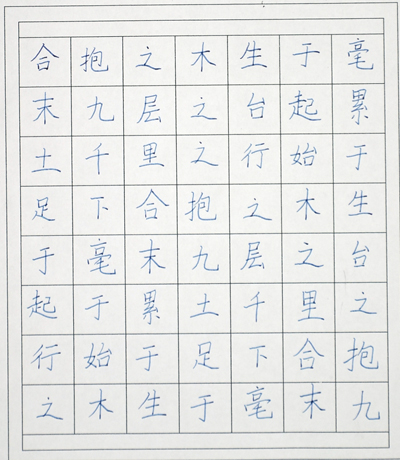 合抱之木生于毫
末九层之台起累
土千里之行始于
足下合抱之木生
于毫末九层之台
起于累土千里之
行始于足下合抱
之木生于毫末九